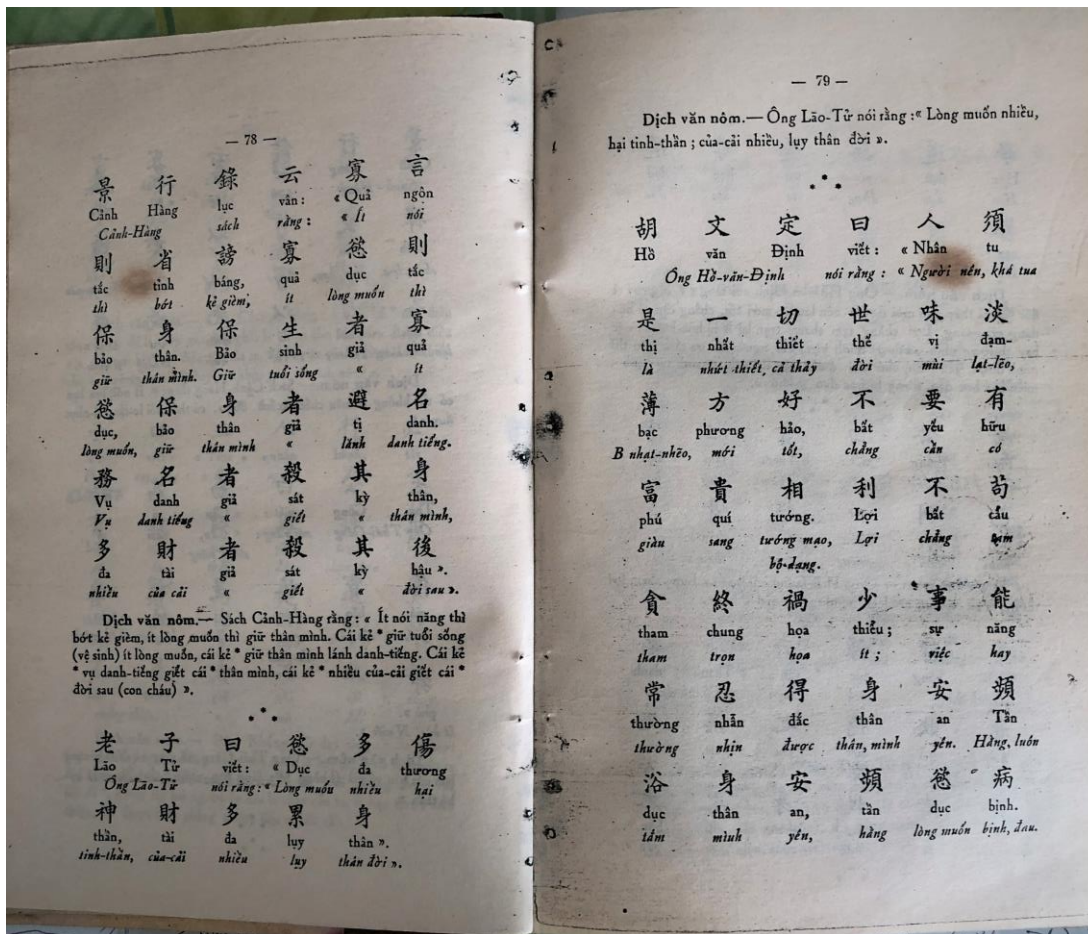 — 78 —
景 行 錄 云 寡 言
Cảnh Hàng lục vân : « Quả ngôn
Cảnh-Hàng sách rằng : « Ít nói
則 省 謗 寡 慾 則
tắc tỉnh báng, quả dục tắc
thì bớt kẻ gièm, ít lòng muốn thì
保 身 保 生 者 寡
bảo thân. Bảo sinh giả quả
giữ thân mình. Giữ tuổi sống « ít
慾 保 身 者 避 名
dục, bảo thân giả tị danh.
lòng muốn, giữ thân mình « lánh danh tiếng.
務 名 者 殺 其 身
Vụ danh giả sát kỳ thân,
Vụ danh tiếng « giết « thân mình,
多 財 者 殺 其 後
đa tài giả sát kỳ hậu ».
nhiều của cải « giết « đời sau ».
Dịch văn nôm.— Sách Cảnh-Hàng rằng : « Ít nói năng thì
bớt kẻ gièm, ít lòng muốn thì giữ thân mình. Cái kẻ * giữ tuổi sống
(vệ sinh) ít lòng muốn, cái kẻ * giữ thân mình lánh danh-tiếng. Cái kẻ
* vụ danh-tiếng giết cái * thân mình, cái kẻ * nhiều của-cải giết cái *
đời sau (con cháu) ».
老 子 曰 慾 多 傷
Lão Tử viết : « Dục đa thương
Ông Lão-Tử nói rằng : « Lòng muốn nhiều hại
神 財 多 累 身
thần, tài đa lụy thân ».
tinh-thần, của-cải nhiều lụy thân đời ».
— 79 —
Dịch văn nôm.— Ông Lão-Tử nói rằng : « Lòng muốn nhiều,
hại tinh-thần ; của-cải nhiều, lụy thân đời ».
胡 文 定 曰 人 須
Hồ văn Định viết : « Nhân tu
Ông Hồ-văn-Định nói rằng : « Người nên, khá tua
是 一 切 世 味 淡
thị nhất thiết thế vị đạm-
là nhứt thiết, cả thảy đời mùi lạt-lẽo,
薄 方 好 不 要 有
bạc phương hảo, bất yếu hữu
B nhạt-nhẽo, mới tốt, chẳng cần có
富 貴 相 利 不 苟
phú quí tướng. Lợi bất cẩu
giàu sang tướng mạo, Lợi chẳng
bộ-dạng.
貪 終 禍 少 事 能
tham chung họa thiểu ; sự năng
tham trọn họa ít ; việc hay
常 忍 得 身 安 頻
thường nhẫn đắc thân an Tần
thường nhịn được thân, mình yên. Hằng, luôn
浴 身 安 頻 慾 病
dục thân an, tần dục bịnh.
tắm mình yên, hằng lòng muốn bịnh, đau.